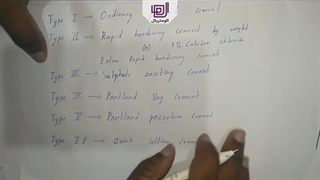 Type I → Ordinary Cement
Type II → Rapid hardening cement by weight
(or) 3% Calcium chloride
Extra Rapid hardening cement
Type III → Sulphate resisting Cement
Type IV → Portland Slag Cement
Type V → Portland pozzolana cement
Type I.P → Quick Setting Cement